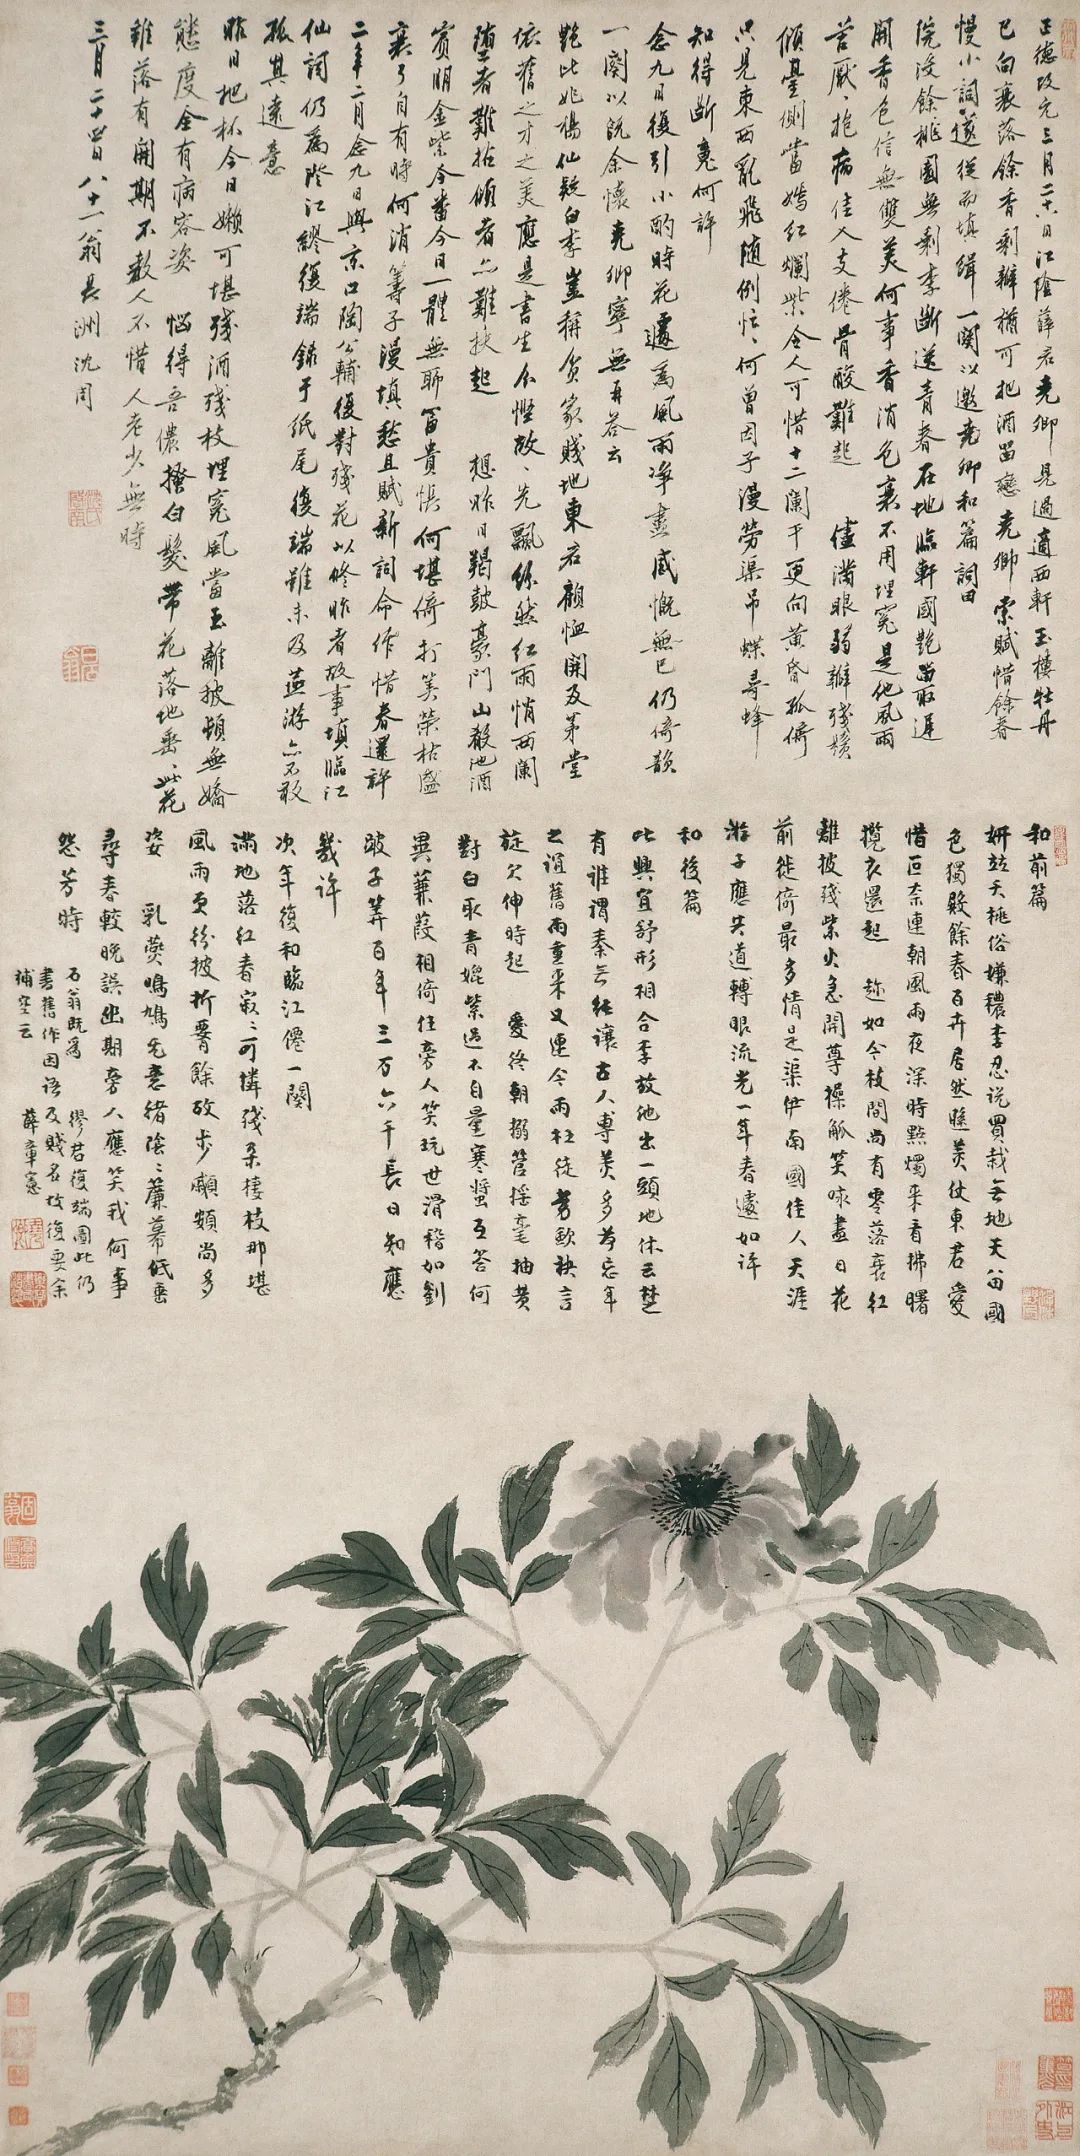 正德改元三月二十六日江陰薛君堯卿見過適西軒玉樓牡丹
已向衰落餘香剩瓣猶可把酒留戀堯卿索賦惜餘春
慢小詞遂從而填緝一闋以邀堯卿和篇詞曰
院沒餘桃園無剩李斷送青春在地臨軒國艷留取遲
開香色信無雙美何事香消色衰不用埋冤是他風雨
苦厭厭抱病佳人支倦骨酸難起 儘滿眼弱瓣殘鬚
傾臺側當嫣紅爛紫令人可惜十二闌干更向黃昏孤倚
只見東西亂飛隨例忙忙何曾因子漫勞渠吊蝶尋蜂
知得斷竟何許
念九日復引小酌時花遽為風雨淨盡感慨無已仍倚韻
一闋以既余懷堯卿寧無再答云
艷比姚楊仙疑白李豈稱貧家賤地東君顧恤開及茅堂
依舊之才之美應是書生分慳故故先飄紛然紅雨悄西闌
墮者難拈傾者亦難扶起 想昨日羯鼓豪門山殽池酒
賓朋金紫今番今日一體無聊富貴悵何堪倚打筭榮枯盛
衰了自有時何消籌子漫填愁且賦新詞命作惜春還許
二年二月念九日與京口陶公輔復對殘花以修昨者故事填臨江
仙詞仍為澄江繆復端錄于紙尾復端雖未及茲游亦不敢
孤其遠意
昨日把杯今日嬾可堪殘酒殘枝埋冤風當五離披頓無嬌
態度全有病容姿 惱得吾儂搔白髮帶花落地垂垂此花
雖落有開期不教人不惜人老少無時
三月二十四日八十一翁長洲沈周
和前篇
妍並夭桃俗嫌穠李忍說買栽無地天留國
色獨殿餘春百卉居然雖美仗東君愛
惜叵奈連朝風雨夜深時點燭來看拂曙
攬衣還起 趂如今枝間尚有零落衰紅
離披殘紫火急開尊操觚笑咏盡日花
前徙倚最多情是渠伊南國佳人天涯
游子應共道轉眼流光一年春遽如許
和後篇
此興宜舒形相合李放他出一頭地休云楚
有誰謂秦無經讓古人專美多夸忘年
之誼舊雨重來又連今雨枉徒勞歐袂言
旋欠伸時起 愛終朝搦管搖毫抽黃
對白取青媲紫過不自量寒螿互答何
異蒹葭相倚任旁人笑玩世滑稽如劉
跛子筭百年三万六千長日知應
幾許
次年復和臨江僊一闋
滿地落紅春寂寂可憐殘朵棲枝那堪
風雨更紛披折腰餘故步顰頰尚多
姿 乳燕鳴鳩無意緒陰陰簾幕低垂
尋春較晚誤幽期旁人應笑我何事
怨芳時
石翁既為 繆君復端圖此仍
書舊作因語及賤名故復要余
補空云 薛章憲